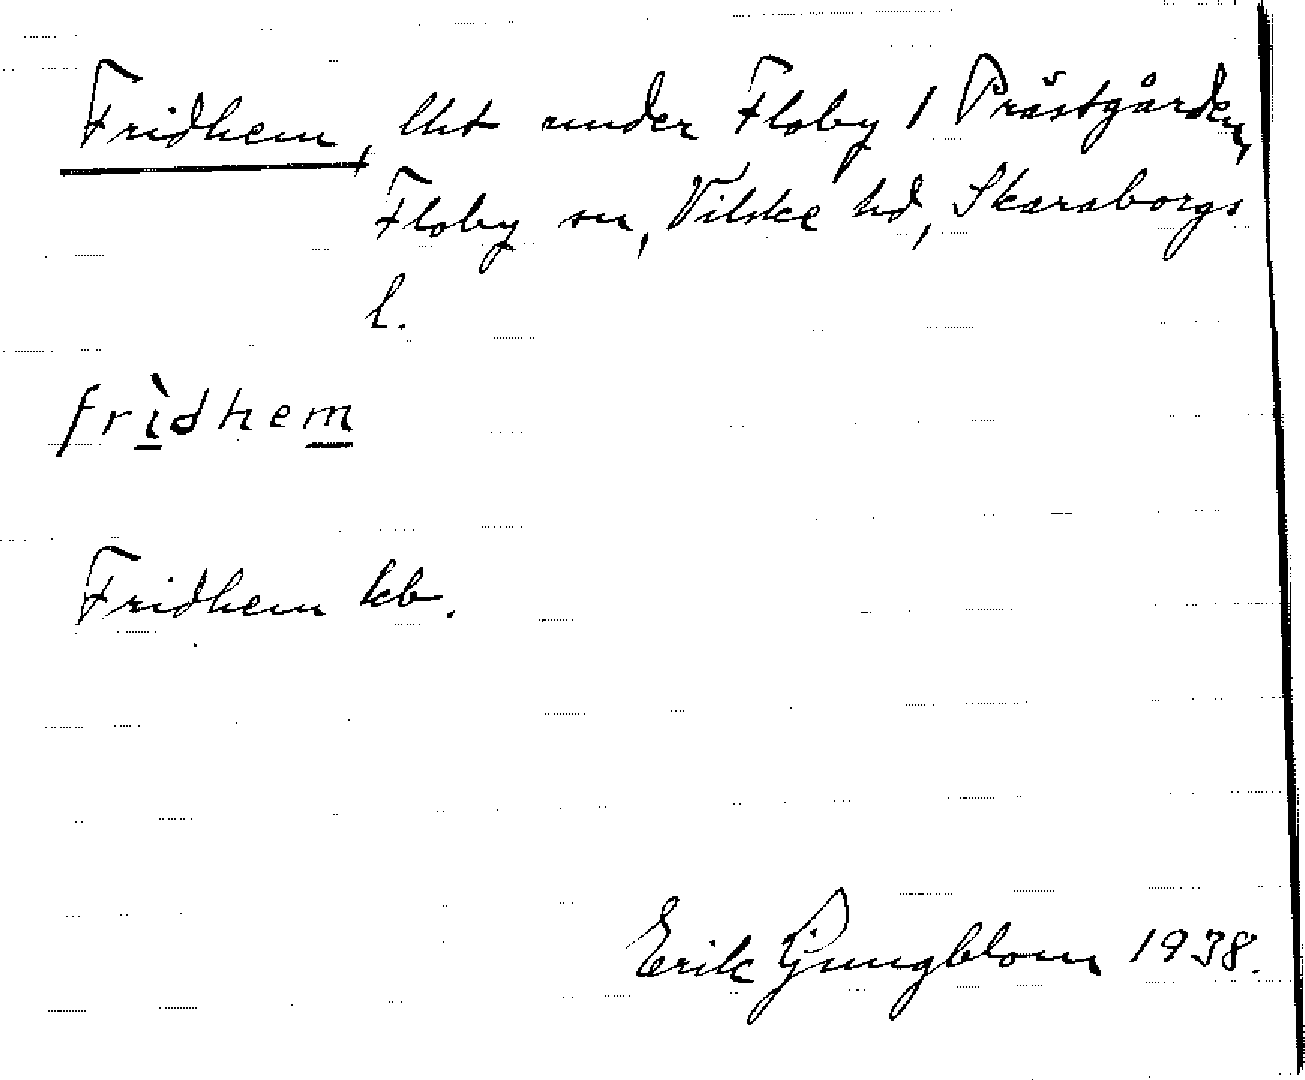 Fridhem, lht under Floby 1 Prästgården,
Floby sn, Vilske hd, Skaraborgs
l.
frìdhem
Fridhem kb.
Erik Ljungblom 1938.